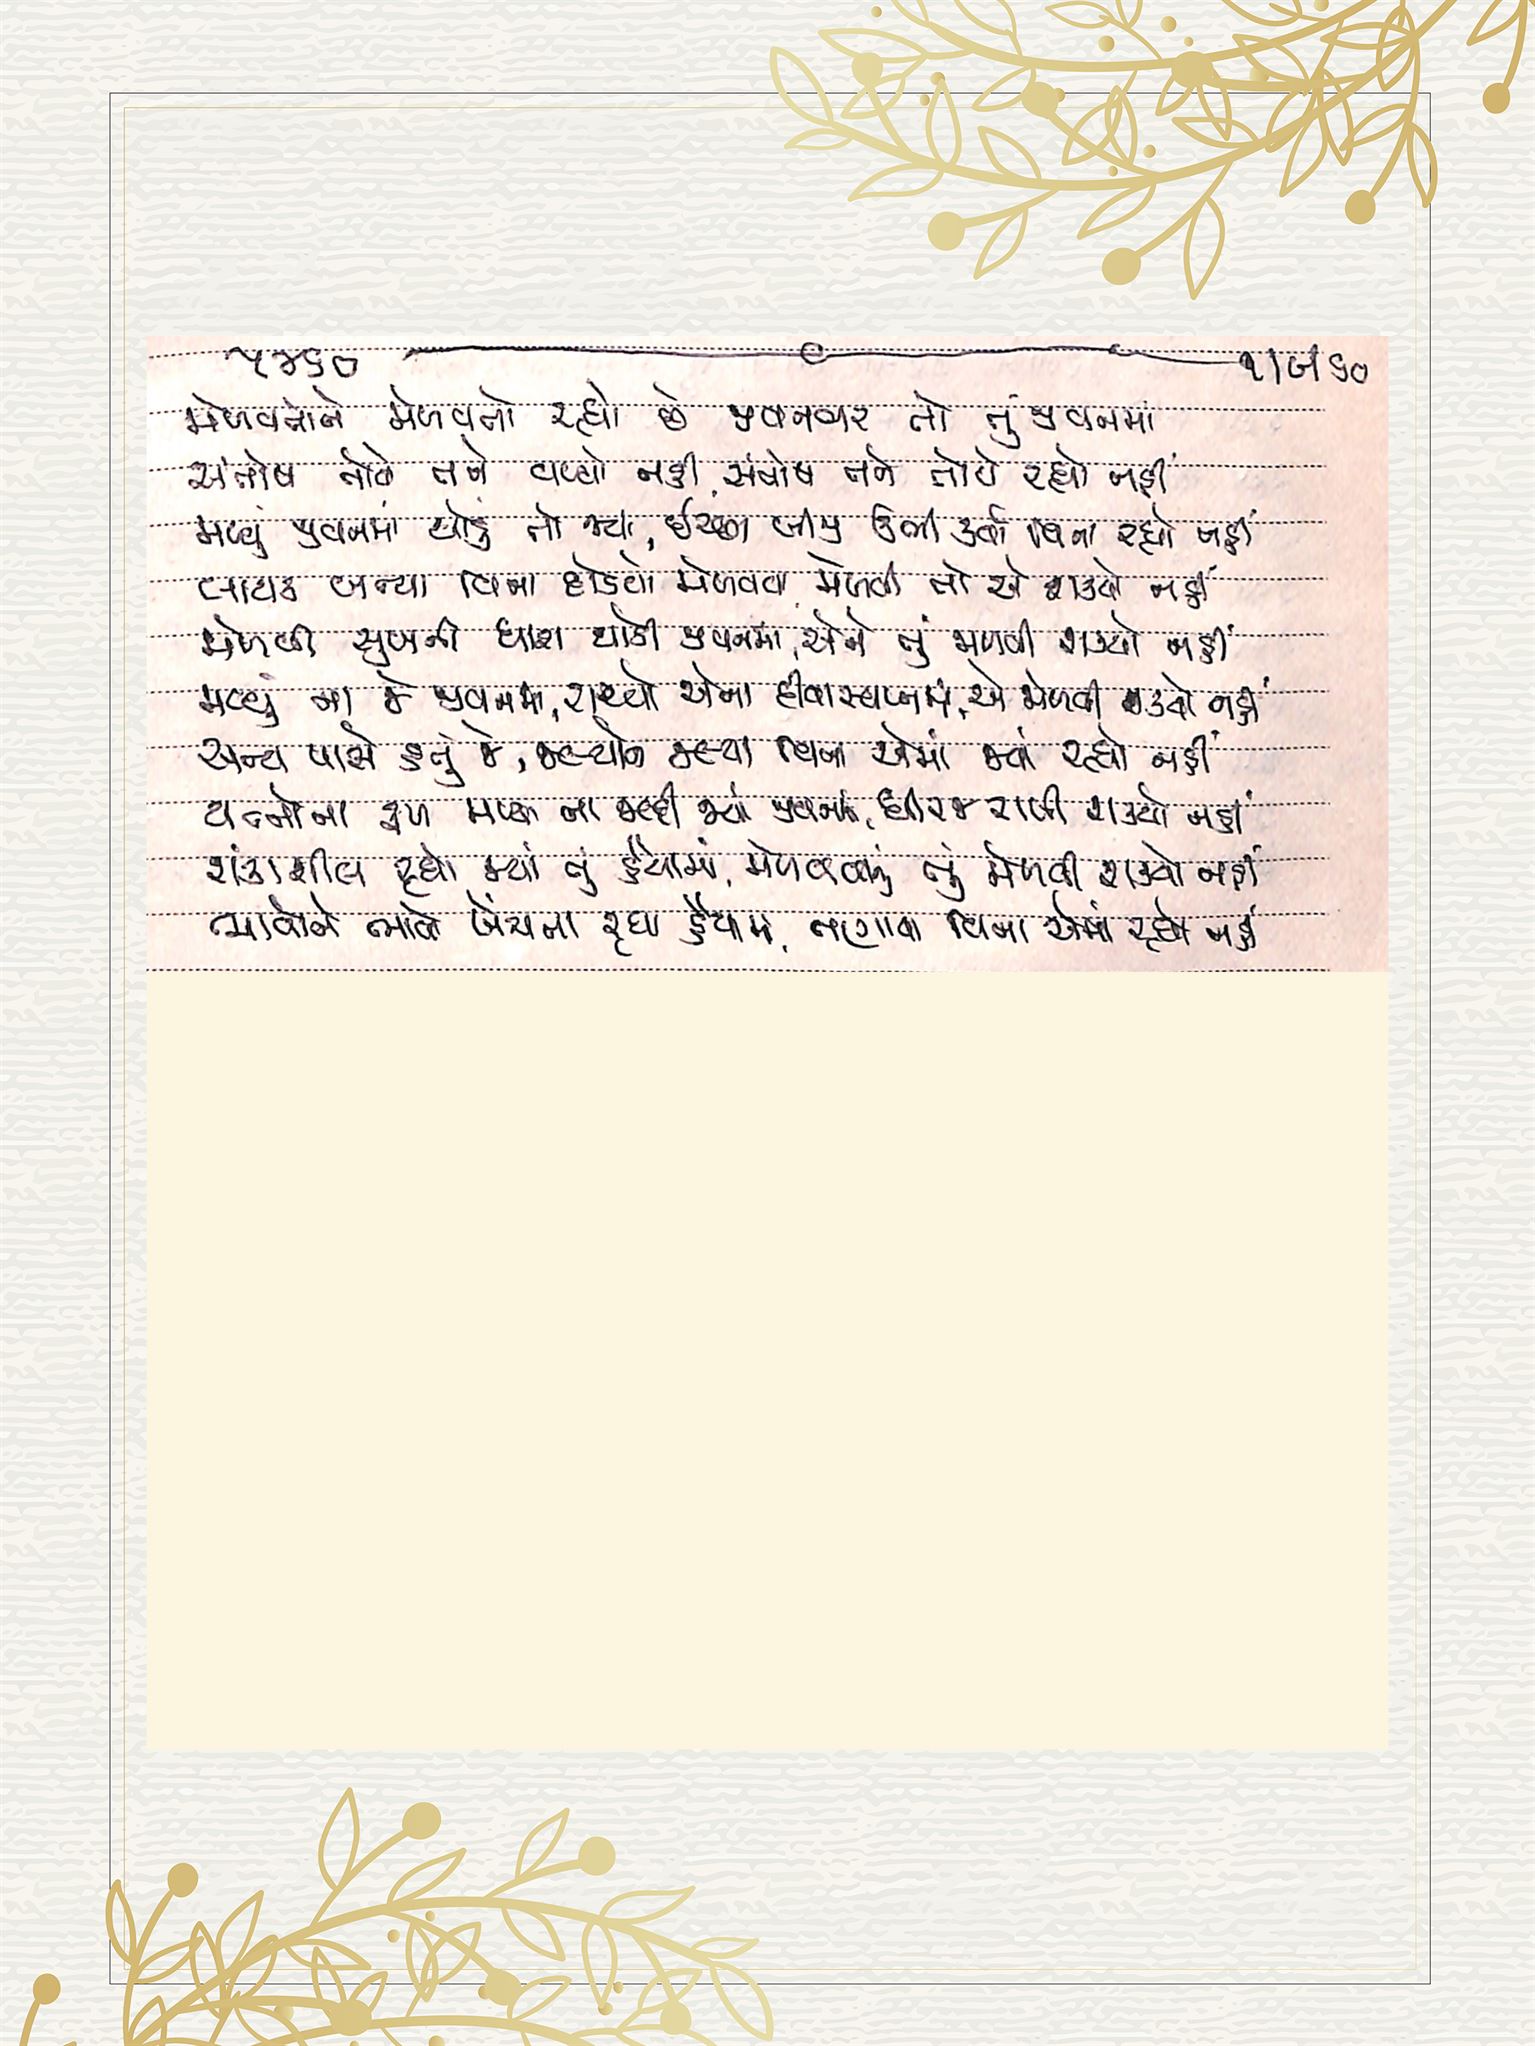 ૫૪૯૦ ૧/૬/૯૦
મેળવતોને મેળવતો રહ્યો છે જીવનભર તો તું જીવનમાં
સંતોષ તોયે તને વળ્યો નહીં, સંતોષ તને તોયે રહ્યો નહીં
મળ્યું જીવનમાં થોડું તો જ્યાં, ઈચ્છા બીજી ઊભી કર્યા વિના રહ્યો નહીં
લાયક બન્યા વિના દોડયો મેળવવા મેળવી તો એ શક્યો નહીં
મેળવી સુખની ધારા થોડી જીવનમાં, એને તું મેળવી શક્યો નહીં
મળ્યું ના જે જીવનમાં, રાચ્યો એના દીવાસ્વપ્નમાં, એ મેળવી શક્યો નહીં
અન્ય પાસે હતું જે, જલ્યો જલ્યા વિના એમાં જ્યાં રહ્યો નહીં
યત્નોના ફળ મળ્યા ના જલ્દી જ્યાં જીવનમાં, ધીરજ રાખી શક્યો નહીં
શંકાશીલ રહ્યો જ્યાં તું હૈયામાં, મેળવવાનું તું મેળવી શક્યો નહીં
ભાવોને ભાવો ખેંચતા રહ્યા હૈયામાં, તણાવા વિના એમાં રહ્યો નહીં